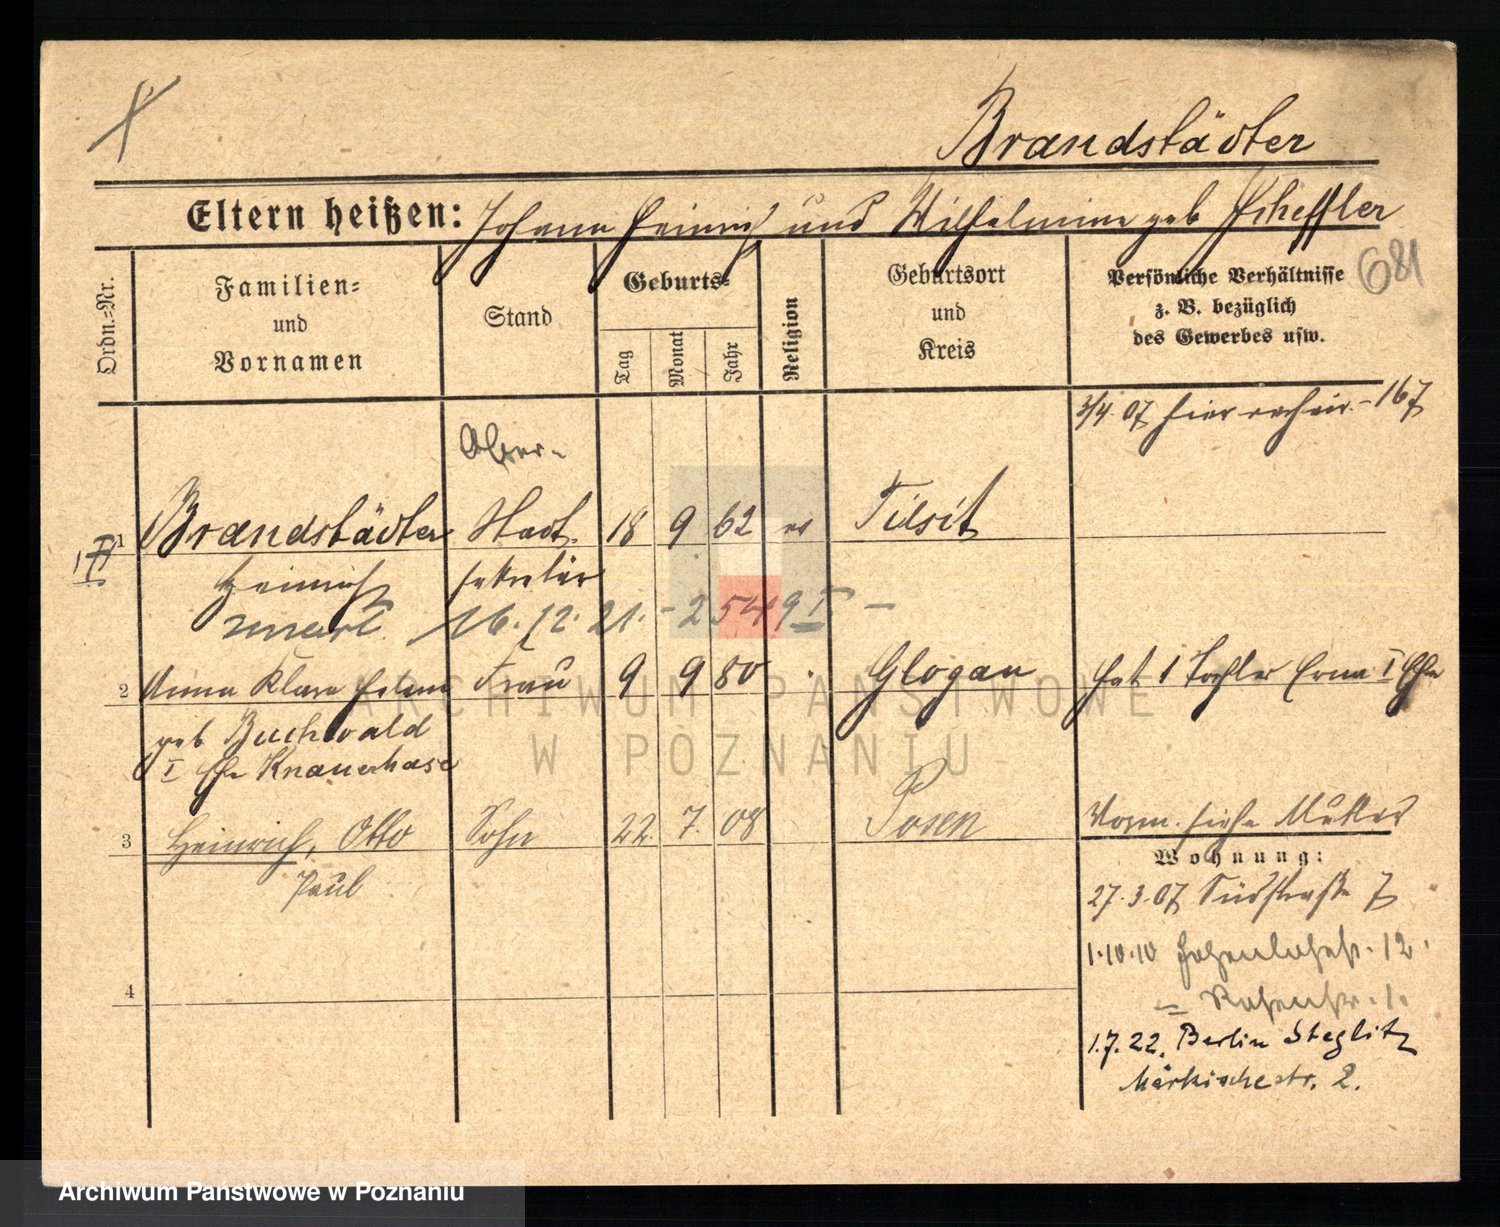 Brandstädter
Eltern heißen: Johann Heinrich und Wilhelmine geb Scheffler
681
Ordn.=Nr.
Familien=
und
Vornamen
Stand
Geburts=
Tag
Monat
Jahr
Religion
Geburtsort
und
Kreis
Persönliche Verhältnisse
z. B. bezüglich
des Gewerbes usw.
3/4 07 hier - 167
Ober-
1 Brandstädter Stadt- 18 9 62 ev Tilsit
Heinrich sekretär
16. 12. 21. - 2549 I -
2 Anna Klara Helene Frau 9 9 80 " Glogau hat 1 Tochter Erna I Ehe
geb Buchwald
I Ehe Knauerhase
3 Heinrich, Otto Sohn 22. 7. 08 Posen Vorm. siehe Mutter
Paul
Wohnung:
27. 3. 07 Südstraße 7
1.10.10 Hohenlohestr. 12.
4
1.7.22. Berlin Steglitz
Märkischestr. 2.
ARCHIWUM PAŃSTWOWE
W POZNANIU
Archiwum Państwowe w Poznaniu